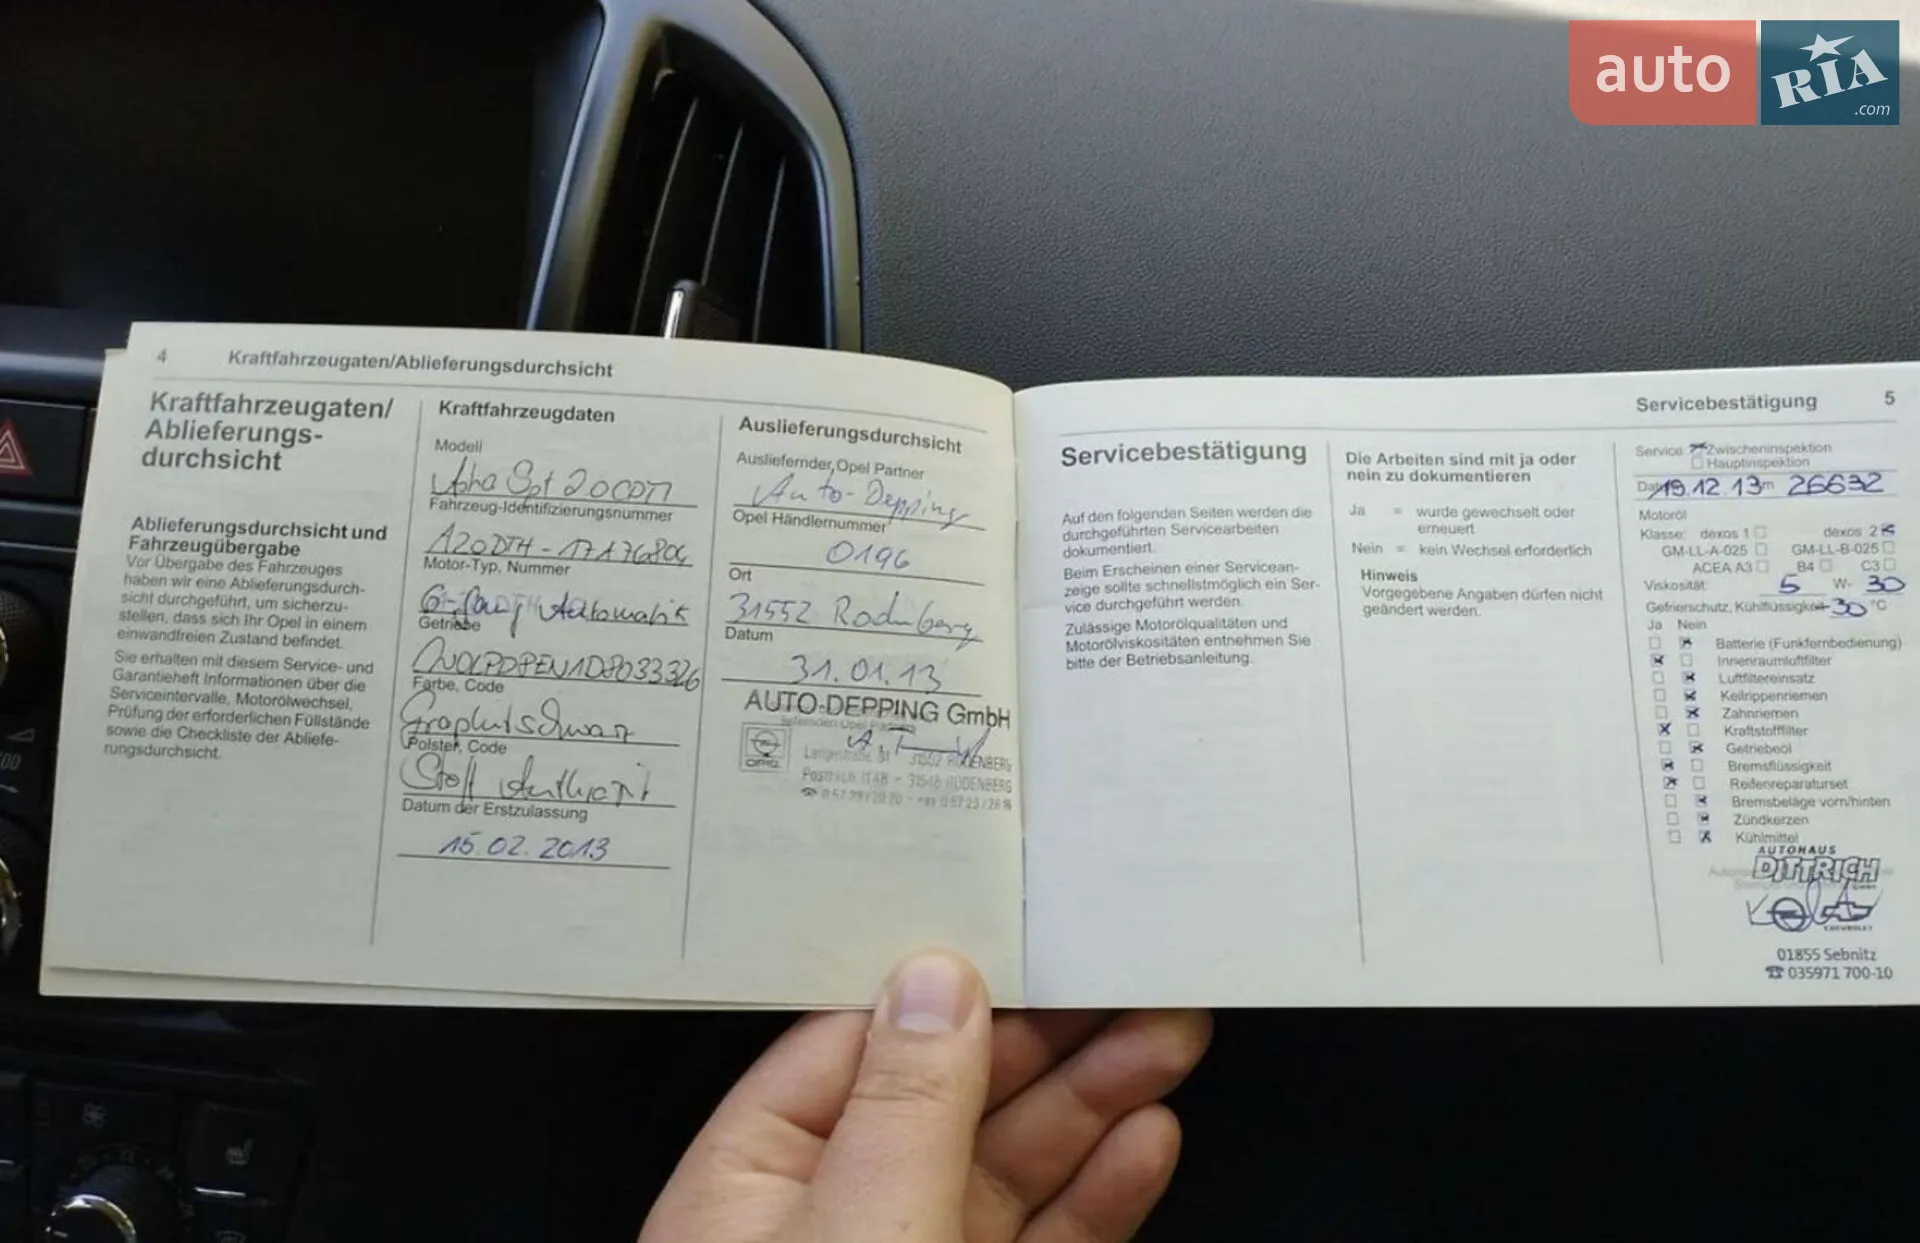 auto
RIA
.com
4
Kraftfahrzeugaten/Ablieferungsdurchsicht
Kraftfahrzeugaten/
Ablieferungs-
durchsicht
Ablieferungsdurchsicht und
Fahrzeugübergabe
Vor Übergabe des Fahrzeuges
haben wir eine Ablieferungsdurch-
sicht durchgeführt, um sicherzu-
stellen, dass sich Ihr Opel in einem
einwandfreien Zustand befindet.
Sie erhalten mit diesem Service- und
Garantieheft Informationen über die
Serviceintervalle, Motorölwechsel,
Prüfung der erforderlichen Füllstände
sowie die Checkliste der Abliefe-
rungsdurchsicht.
Kraftfahrzeugdaten
Modell
2.0 CDTI
Fahrzeug-Identifizierungsnummer
A20DTH - 17176804
Motor-Typ, Nummer
6-Gang Automatik
Getriebe
W0LPDPEN1D8033326
Farbe, Code
Graphitschwarz
Polster, Code
Stoff Anthrazit
Datum der Erstzulassung
15.02.2013
Auslieferungsdurchsicht
Ausliefernder Opel Partner
Auto-Depping
Opel Händlernummer
0196
Ort
31552 Rodenberg
Datum
31.01.13
AUTO-DEPPING GmbH
OPEL
31552 RODENBERG
31548 RODENBERG
5
Servicebestätigung
Servicebestätigung
Auf den folgenden Seiten werden die
durchgeführten Servicearbeiten
dokumentiert.
Beim Erscheinen einer Servicean-
zeige sollte schnellstmöglich ein Ser-
vice durchgeführt werden.
Zulässige Motorölqualitäten und
Motorölviskositäten entnehmen Sie
bitte der Betriebsanleitung.
Die Arbeiten sind mit ja oder
nein zu dokumentieren
Ja = wurde gewechselt oder
erneuert
Nein = kein Wechsel erforderlich
Hinweis
Vorgegebene Angaben dürfen nicht
geändert werden.
Service: Zwischeninspektion
Hauptinspektion
19.12.13 26632
Motoröl
Klasse: dexos 1 dexos 2
GM-LL-A-025 GM-LL-B-025
ACEA A3 B4 C3
Viskosität: 5 W- 30
Gefrierschutz, Kühlflüssigkeit -30 °C
Ja Nein
Batterie (Funkfernbedienung)
Innenraumluftfilter
Luftfiltereinsatz
Keilrippenriemen
Zahnriemen
Kraftstofffilter
Getriebeöl
Bremsflüssigkeit
Reifenreparaturset
Bremsbeläge vorn/hinten
Zündkerzen
Kühlmittel
AUTOHAUS
DITTRICH
CHEVROLET
01855 Sebnitz
☎ 035971 700-10